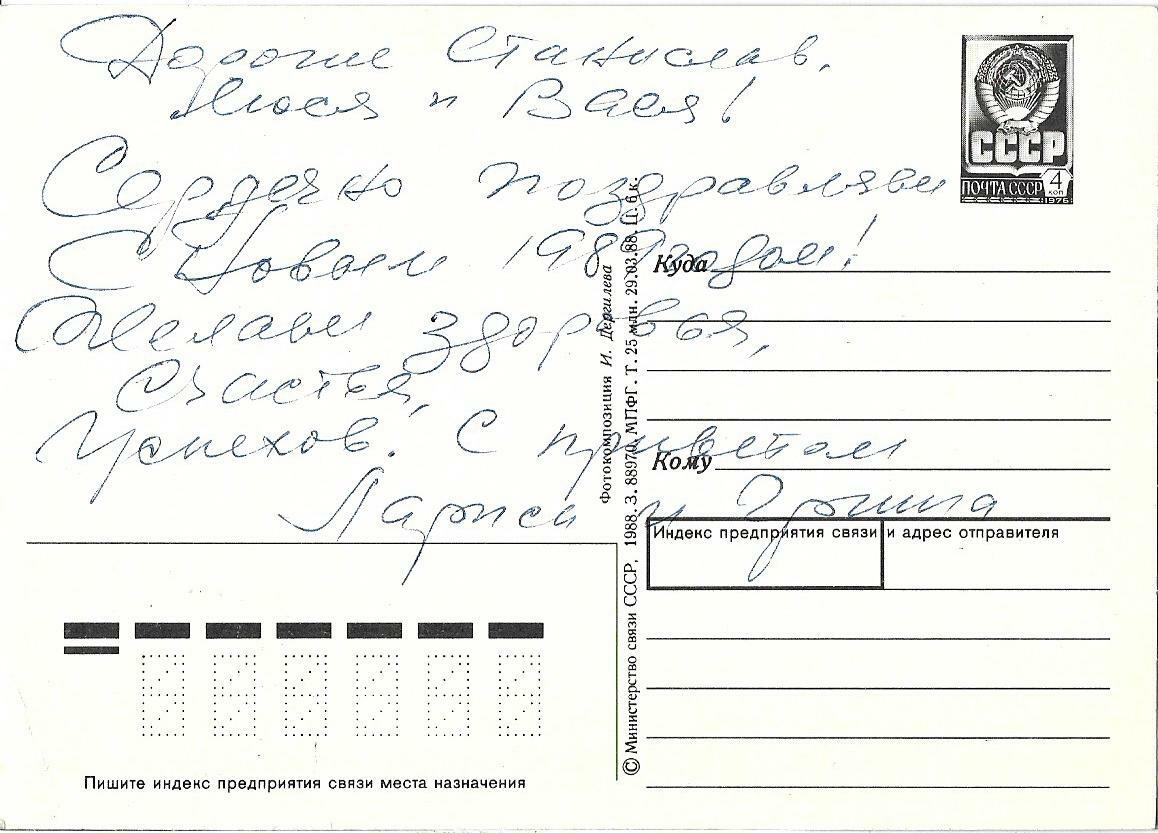 Дорогие Станислав,
Люся и Вася!
Сердечно поздравляем
С Новым 1989 годом!
Желаем здоровья,
Счастья,
Успехов! С приветом
Лариса и Ирина
СССР
ПОЧТА СССР 4
КОП
1976
Куда
Кому
Индекс предприятия связи и адрес отправителя
Фотокомпозиция И. Дергилева
© Министерство связи СССР, 1988. З. 88970. МПФГ. Т. 25 млн. 29.03.88. Ц. 6 к.
Пишите индекс предприятия связи места назначения